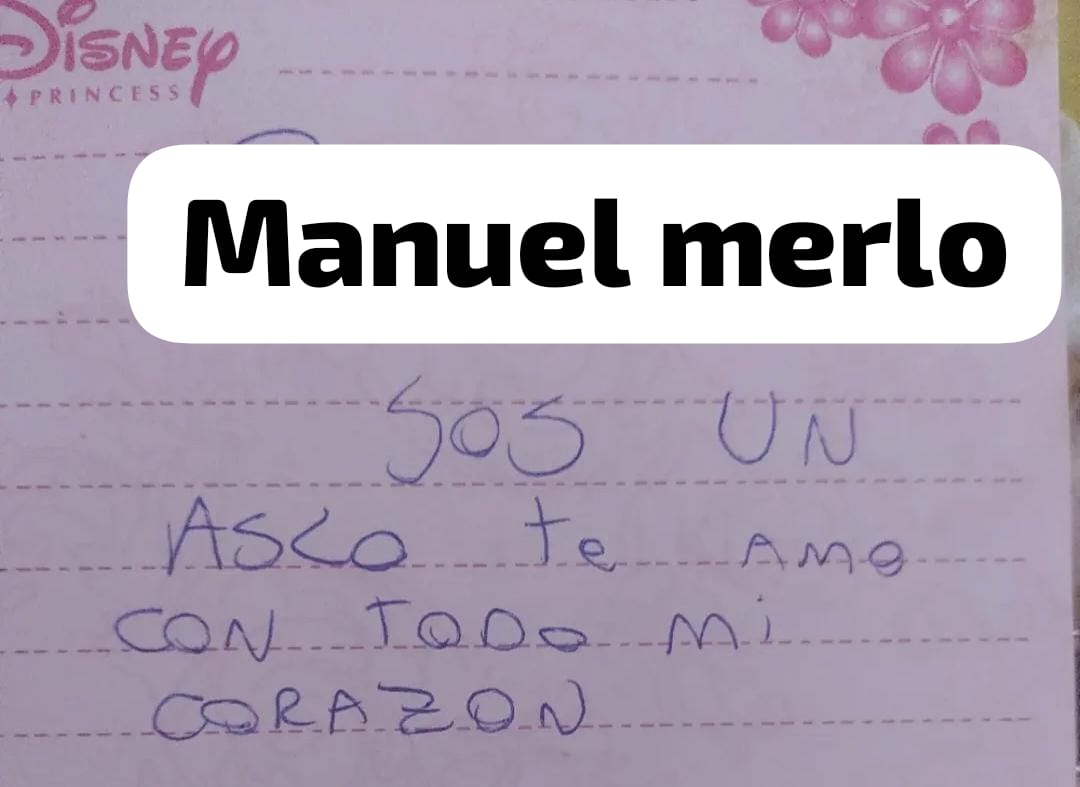 Disney
PRINCESS
Manuel merlo
SOS UN
ASCO te AMO
CON TODO Mi
CORAZON